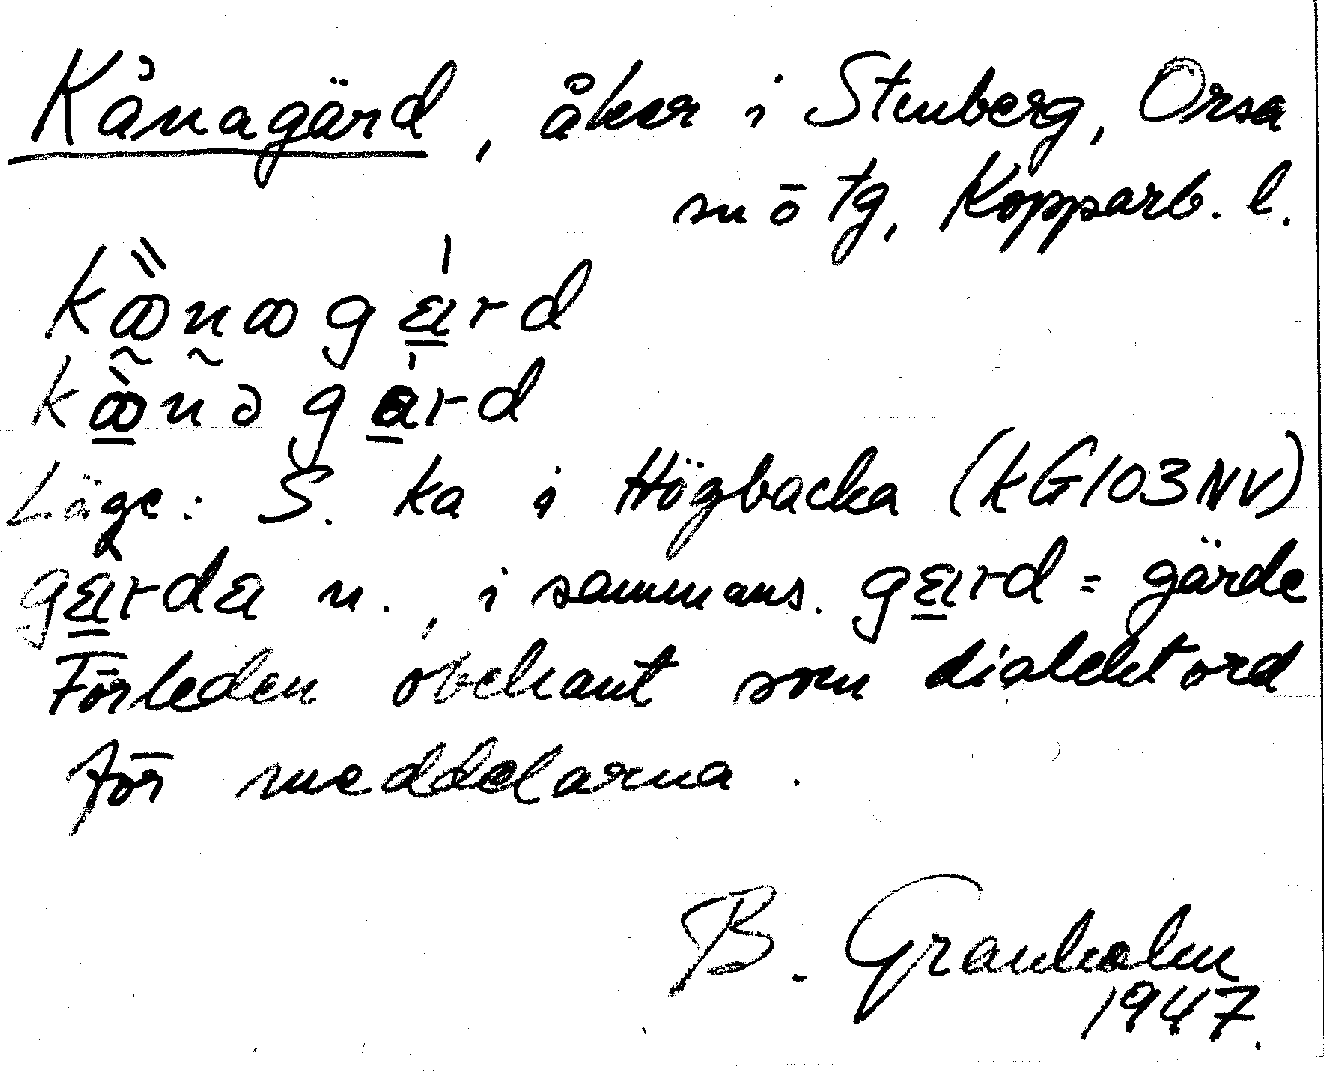 Kånagärd, åker i Stenberg, Orsa
sn ö tg, Kopparb. l.
Läge: S. ka i Högbacka (kG103NV)
n., i sammans. = gärde
Förleden obekant som dialektord
för meddelarna.
B. Granholm
1947.